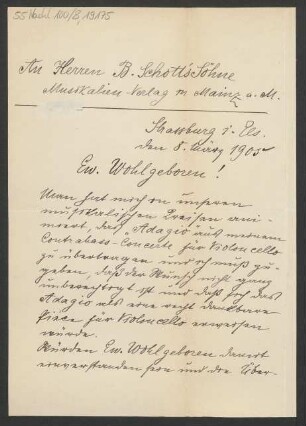 55 Nachl 100/B, 19175
An Herren B. Schott's Söhne
Musikalien-Verlag in Mainz a. M.
Strassburg i. Els.
den 8. März 1905
Ew. Wohlgeboren!
Man hat mich in unseren
musikalischen Kreisen ani-
miert, das "Adagio" aus meinem
Contrabass-Concerte für Violoncello
zu übertragen und ich muß zu-
geben, daß der Wunsch nicht ganz
unberechtigt ist und daß sich das
Adagio als eine recht dankbare
Piece für Violoncello erweisen
würde.
Würden Ew. Wohlgeboren damit
einverstanden sein und die Über-